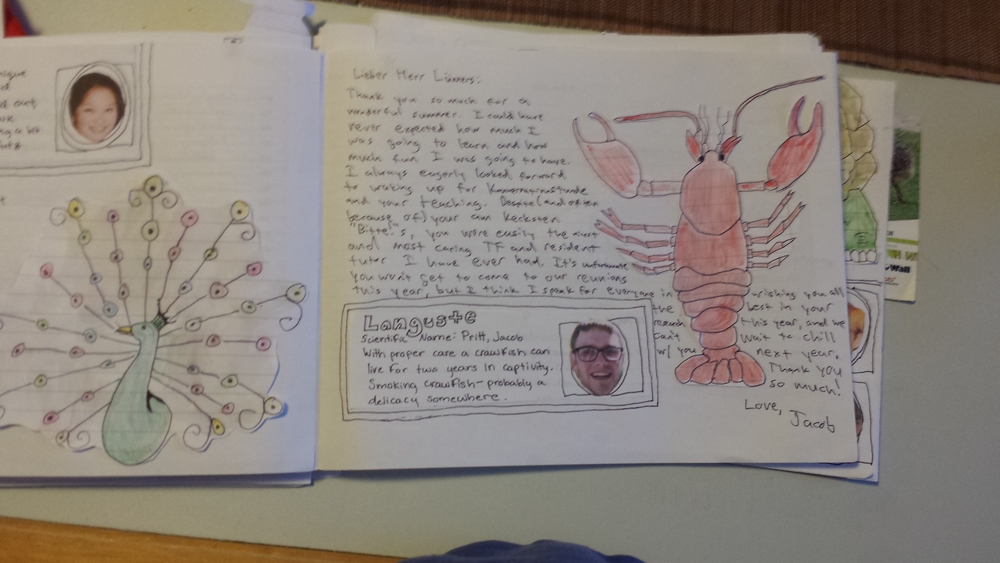 Lieber Herr
Thank you so much for a
wonderful summer. I could have
never expected how much I
was going to learn and how
much fun I was going to have.
I always eagerly looked forward
to waking up for
and your teaching. Despite (and often
because of) your own kecksten
"Bitte"s, you were easily the
and most caring TF and resident
tutor I have ever had. It's unfortunate
you won't get to come to our reunions
this year, but I think I speak for everyone in wishing you all
the best in your
research this year, and we
can't wait to chill
w/ you next year.
Thank you
so much!
Love,
Jacob
Languste
Scientific Name: Pritt, Jacob
With proper care a crawfish can
live for two years in captivity.
Smoking crawfish - probably a
delicacy somewhere.
nique
d
d out
a bit
Wall